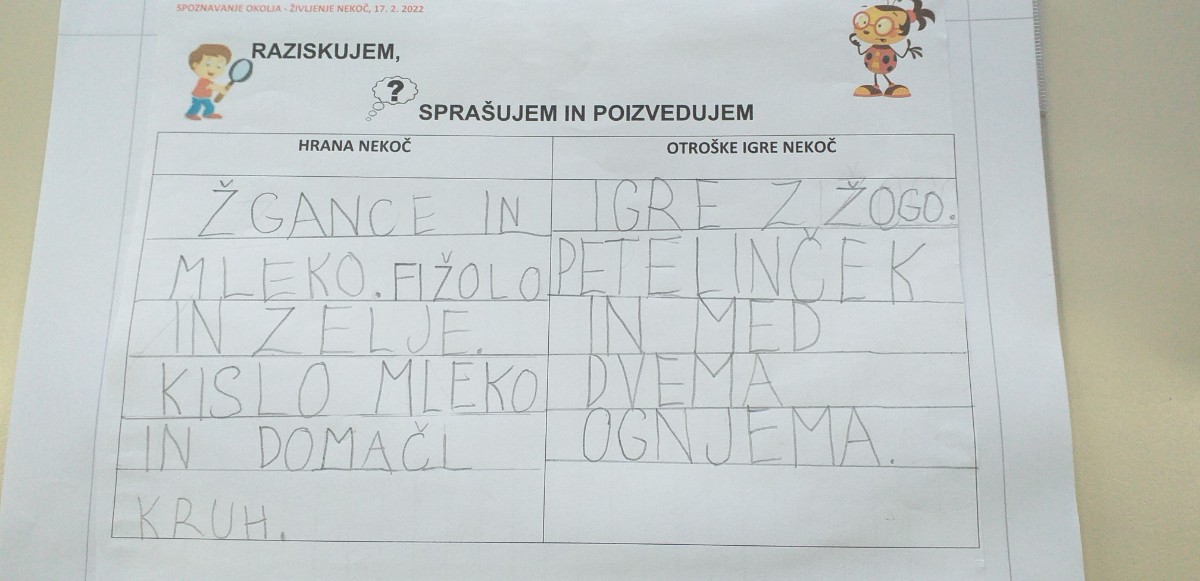 SPOZNAVANJE OKOLJA - ŽIVLJENJE NEKOČ, 17. 2. 2022
RAZISKUJEM,
?
SPRAŠUJEM IN POIZVEDUJEM
HRANA NEKOČ
ŽGANCE IN
MLEKO. FIŽOLO
IN ZELJE.
KISLO MLEKO
IN DOMAČI
KRUH.
OTROŠKE IGRE NEKOČ
IGRE Z ŽOGO.
PETELINČEK
IN MED
DVEMA
OGNJEMA.